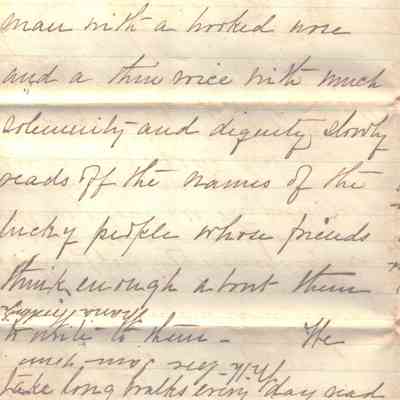 man with a hooked nose
and a thin voice with much
solemnity and dignity slowly
reads off the names of the
lucky people whose friends
think enough about them
to write to them - He
take long walks every day read